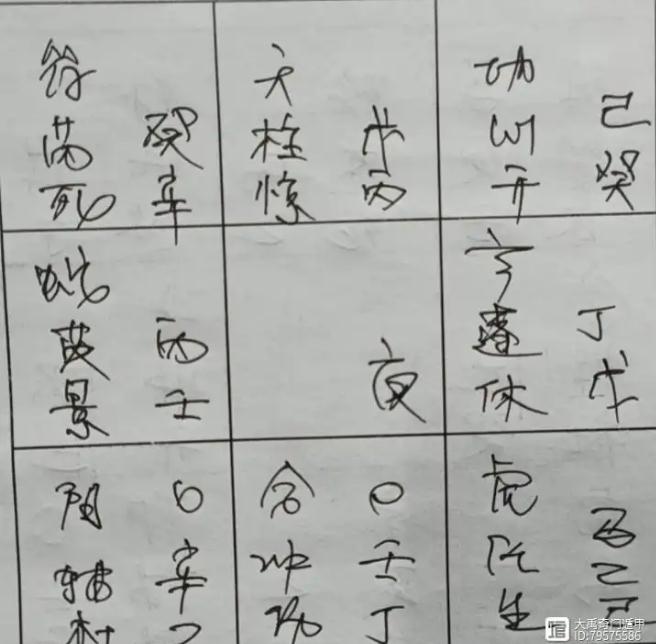 符
芮 癸
死 辛
天
柱 戊
惊 丙
九
心 己
开 癸
蛇
英 丙
景 壬
庚
玄
蓬 丁
休 戊
阴 O
辅 辛
杜
合 O
冲 壬
伤 丁
虎
任
生 己
大禹奇门遁甲
ID:79575586